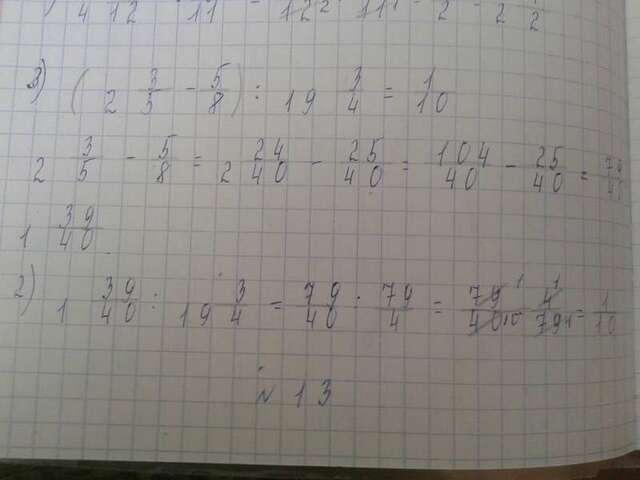 4 12 11 = 12 2 · 11 1 = 2 = 2 2
3) (2 3/5 - 5/8) : 19 3/4 = 1/10
2 3/5 - 5/8 = 2 24/40 - 25/40 = 104/40 - 25/40 = 79/40
1 39/40
2) 1 39/40 : 19 3/4 = 79/40 : 79/4 = 79 1/40 10 4 1/79 1 = 1/10
№ 13